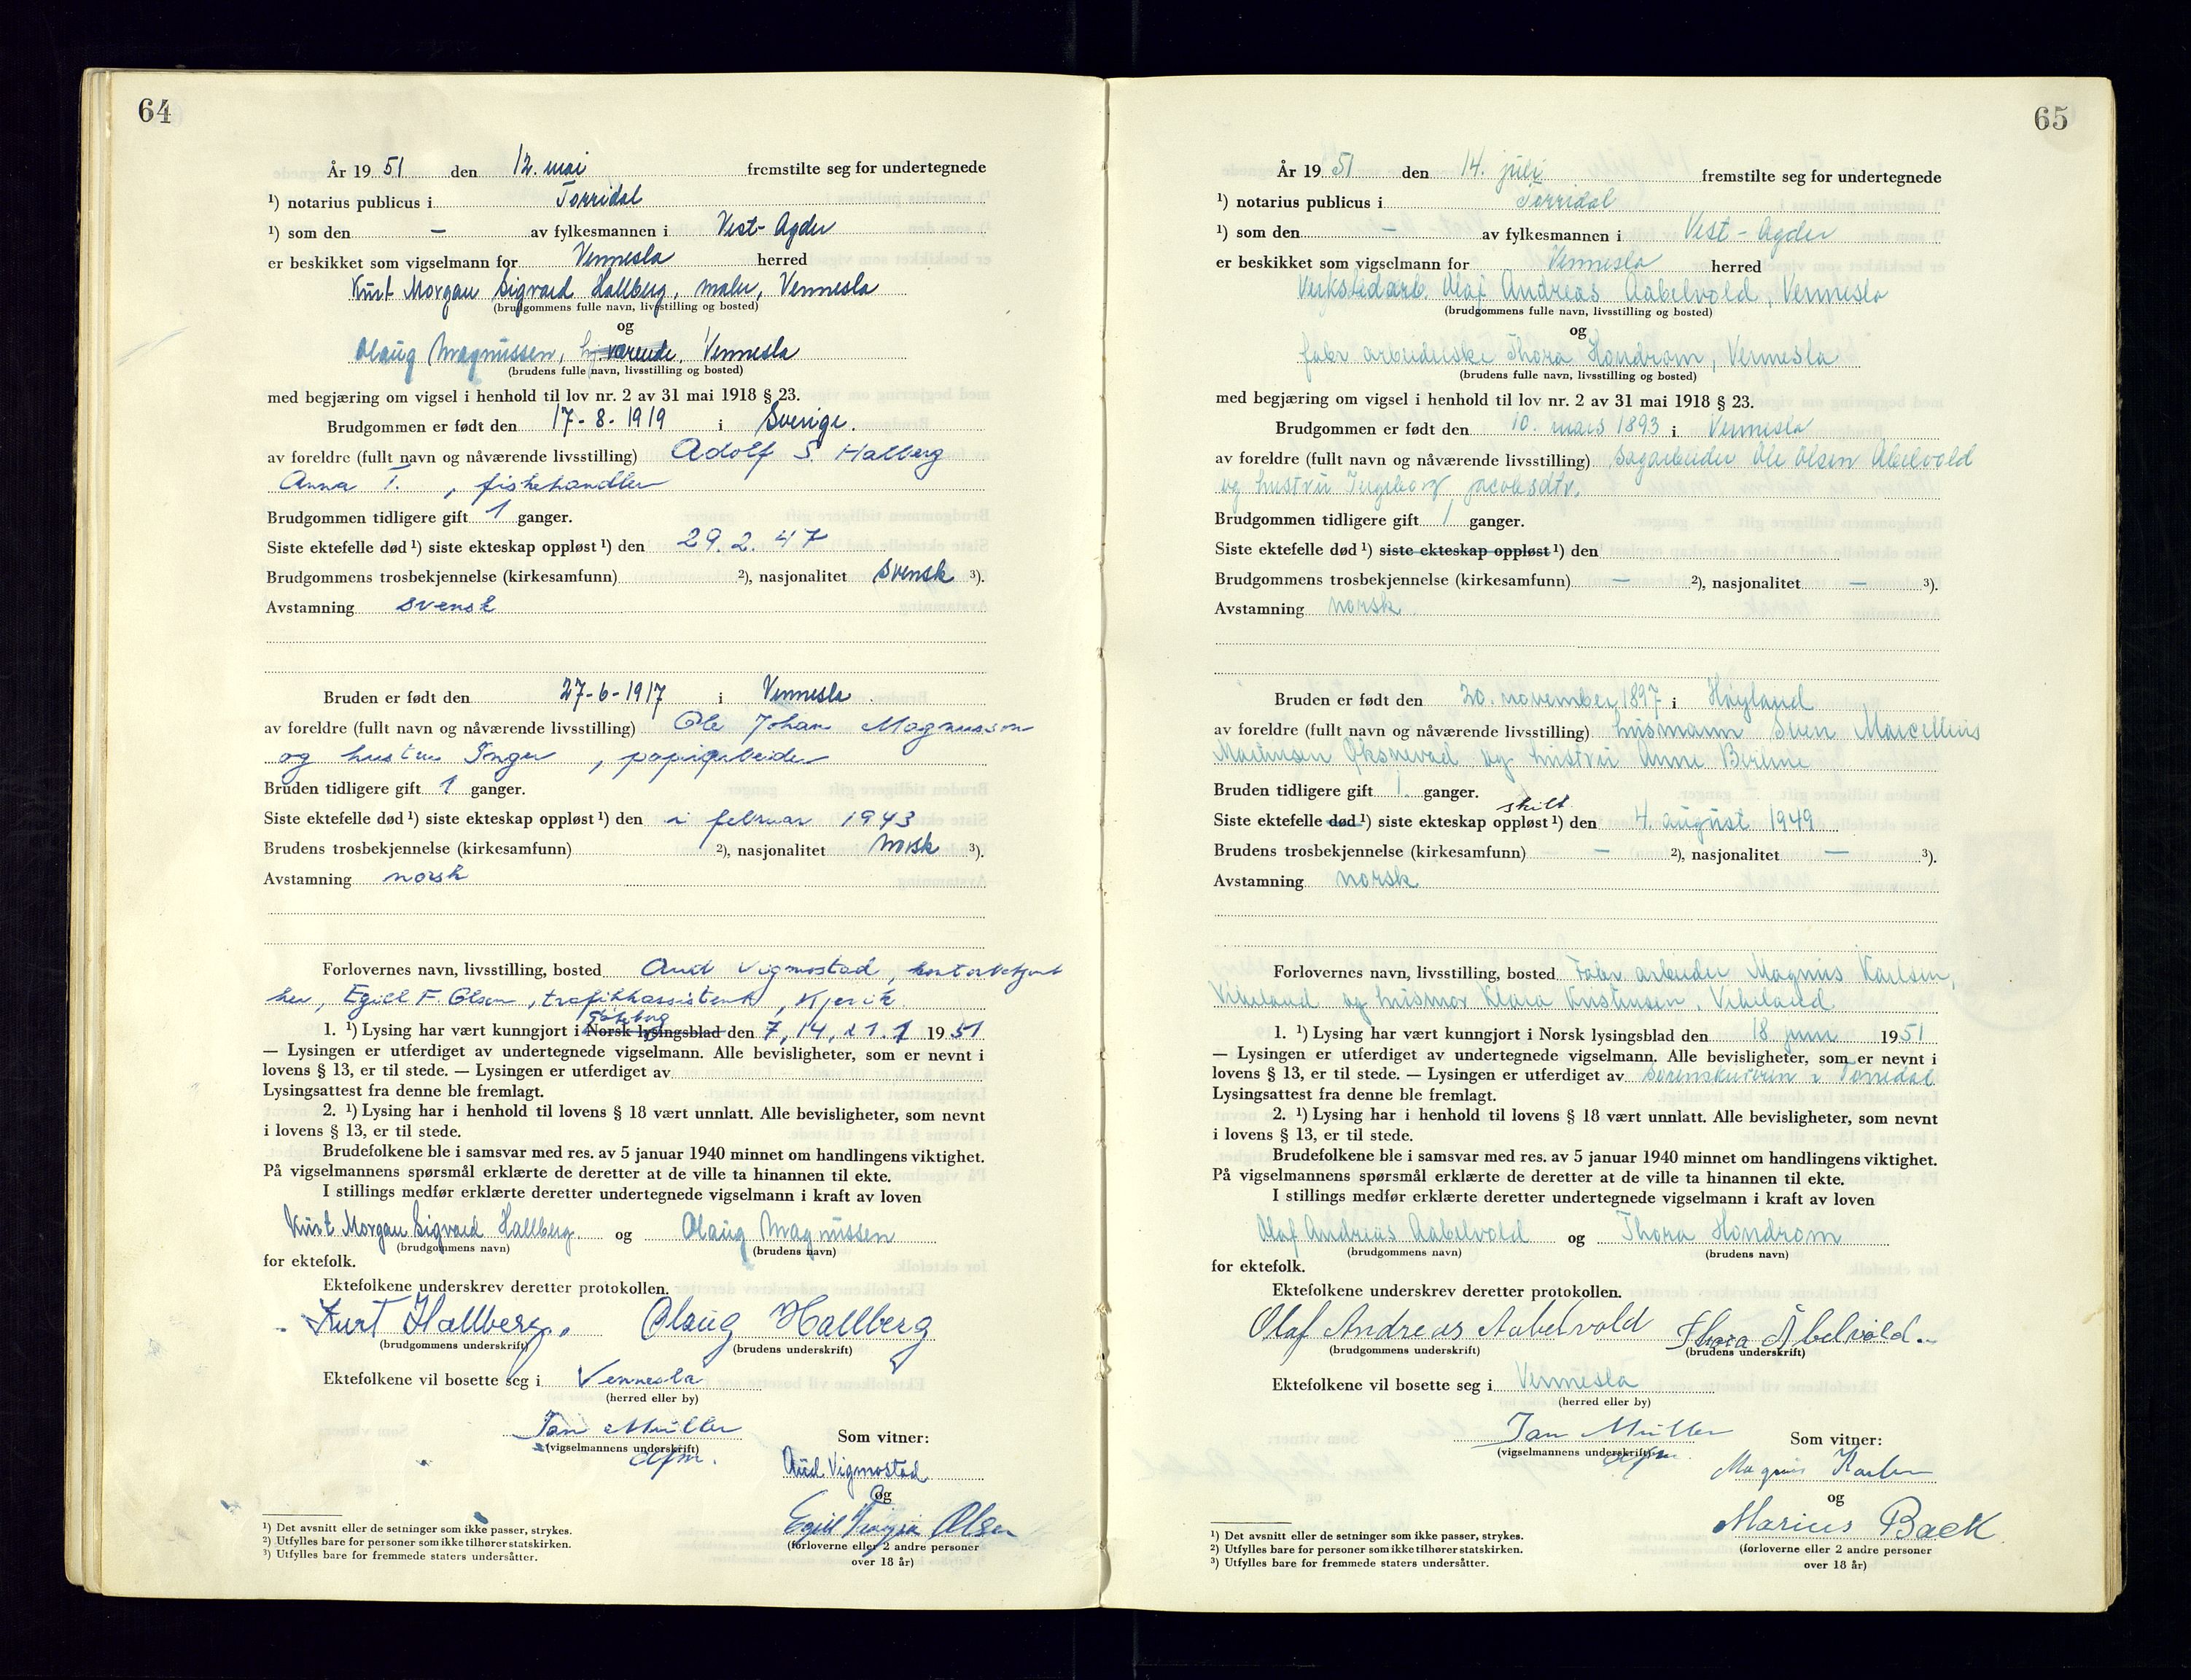 64
År 19 51 den 12. mai fremstilte seg for undertegnede
¹) notarius publicus i Torridal
¹) som den — av fylkesmannen i Vest-Agder
er beskikket som vigselmann for Vennesla herred
Kurt Morgan Sigvard Hallberg, maler, Vennesla
(brudgommens fulle navn, livsstilling og bosted)
og
Olaug Magnussen, værende, Vennesla
(brudens fulle navn, livsstilling og bosted)
med begjæring om vigsel i henhold til lov nr. 2 av 31 mai 1918 § 23.
Brudgommen er født den 17-8-1919 i Sverige.
av foreldre (fullt navn og nåværende livsstilling) Adolf S. Halberg
Anna T. , fiskehandler
Brudgommen tidligere gift 1 ganger.
Siste ektefelle død ¹) siste ekteskap oppløst ¹) den 29.2.47
Brudgommens trosbekjennelse (kirkesamfunn) ²), nasjonalitet Svensk ³).
Avstamning svensk
Bruden er født den 27-6-1917 i Vennesla
av foreldre (fullt navn og nåværende livsstilling) Ole Johan Magnussen
og hustru Inger , papirarbeider
Bruden tidligere gift 1 ganger.
Siste ektefelle død ¹) siste ekteskap oppløst ¹) den i februar 1943
Brudens trosbekjennelse (kirkesamfunn) ²), nasjonalitet Norsk ³).
Avstamning norsk
Forlovernes navn, livsstilling, bosted Aud Vigmostad, kontorbetjent
her, Egill F. Olsen, trafikkassistent, Kjevik
Göteborg
1. ¹) Lysing har vært kunngjort i Norsk lysingsblad den 7, 14, 21. 1 19 51
— Lysingen er utferdiget av undertegnede vigselmann. Alle bevisligheter, som er nevnt i
lovens § 13, er til stede. — Lysingen er utferdiget av
Lysingsattest fra denne ble fremlagt.
2. ¹) Lysing har i henhold til lovens § 18 vært unnlatt. Alle bevisligheter, som nevnt
i lovens § 13, er til stede.
Brudefolkene ble i samsvar med res. av 5 januar 1940 minnet om handlingens viktighet.
På vigselmannens spørsmål erklærte de deretter at de ville ta hinannen til ekte.
I stillings medfør erklærte deretter undertegnede vigselmann i kraft av loven
Kurt Morgan Sigvard Hallberg og Olaug Magnussen
(brudgommens navn) (brudens navn)
for ektefolk.
Ektefolkene underskrev deretter protokollen.
Kurt Hallberg. Olaug Hallberg
(brudgommens underskrift) (brudens underskrift)
Ektefolkene vil bosette seg i Vennesla
(herred eller by)
Jan Müller
(vigselmannens underskrift) Som vitner:
dfm.
Aud Vigmostad
og
Egill Olsen
(forloverne eller 2 andre personer
over 18 år)
¹) Det avsnitt eller de setninger som ikke passer, strykes.
²) Utfylles bare for personer som ikke tilhører statskirken.
³) Utfylles bare for fremmede staters undersåtter.
65
År 19 51 den 14. juli fremstilte seg for undertegnede
¹) notarius publicus i Torridal
¹) som den — av fylkesmannen i Vest-Agder
er beskikket som vigselmann for Vennesla herred
Verkstedarb. Olaf Andreas Aabelvold, Vennesla
(brudgommens fulle navn, livsstilling og bosted)
og
fabr arbeiderske Thora Hondrom, Vennesla
(brudens fulle navn, livsstilling og bosted)
med begjæring om vigsel i henhold til lov nr. 2 av 31 mai 1918 § 23.
Brudgommen er født den 10. mars 1893 i Vennesla
av foreldre (fullt navn og nåværende livsstilling) Sagarbeider Ole Olsen Abelvold
og hustru Ingeborg Jacobsdtr.
Brudgommen tidligere gift 1 ganger.
Siste ektefelle død ¹) siste ekteskap oppløst ¹) den
Brudgommens trosbekjennelse (kirkesamfunn) — ²), nasjonalitet — ³).
Avstamning norsk
Bruden er født den 20. november 1897 i Høyland
av foreldre (fullt navn og nåværende livsstilling) husmann Sven Marcellius
Martinsen Øksnevad og hustru Anne Berline
Bruden tidligere gift 1. ganger.
skilt
Siste ektefelle død ¹) siste ekteskap oppløst ¹) den 4. august 1949
Brudens trosbekjennelse (kirkesamfunn) — ²), nasjonalitet — ³).
Avstamning norsk
Forlovernes navn, livsstilling, bosted Fabr arbeider Magnus Karlsen,
Vikeland og husmor Klara Kristensen, Vikeland
1. ¹) Lysing har vært kunngjort i Norsk lysingsblad den 18 juni 19 51
— Lysingen er utferdiget av undertegnede vigselmann. Alle bevisligheter, som er nevnt i
lovens § 13, er til stede. — Lysingen er utferdiget av Sorenskriveren i Torridal
Lysingsattest fra denne ble fremlagt.
2. ¹) Lysing har i henhold til lovens § 18 vært unnlatt. Alle bevisligheter, som nevnt
i lovens § 13, er til stede.
Brudefolkene ble i samsvar med res. av 5 januar 1940 minnet om handlingens viktighet.
På vigselmannens spørsmål erklærte de deretter at de ville ta hinannen til ekte.
I stillings medfør erklærte deretter undertegnede vigselmann i kraft av loven
Olaf Andreas Aabelvold og Thora Hondrom
(brudgommens navn) (brudens navn)
for ektefolk.
Ektefolkene underskrev deretter protokollen.
Olaf Andreas Aabelvold Thora Åbelvold.
(brudgommens underskrift) (brudens underskrift)
Ektefolkene vil bosette seg i Vennesla
(herred eller by)
Jan Müller
(vigselmannens underskrift) Som vitner:
dfm.
Magnus Karlsen
og
Marius Baek
(forloverne eller 2 andre personer
over 18 år)
¹) Det avsnitt eller de setninger som ikke passer, strykes.
²) Utfylles bare for personer som ikke tilhører statskirken.
³) Utfylles bare for fremmede staters undersåtter.